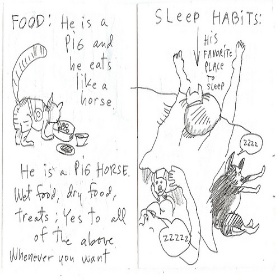 FOOD: He is a
PIG and
he eats
like a
horse.
He is a PIG HORSE.
Wet food, dry food,
treats; Yes to all
of the above
Whenever you want
SLEEP HABITS:
HIS
FAVORITE
PLACE
TO
SLEEP
ZZZZ
ZZZZZ